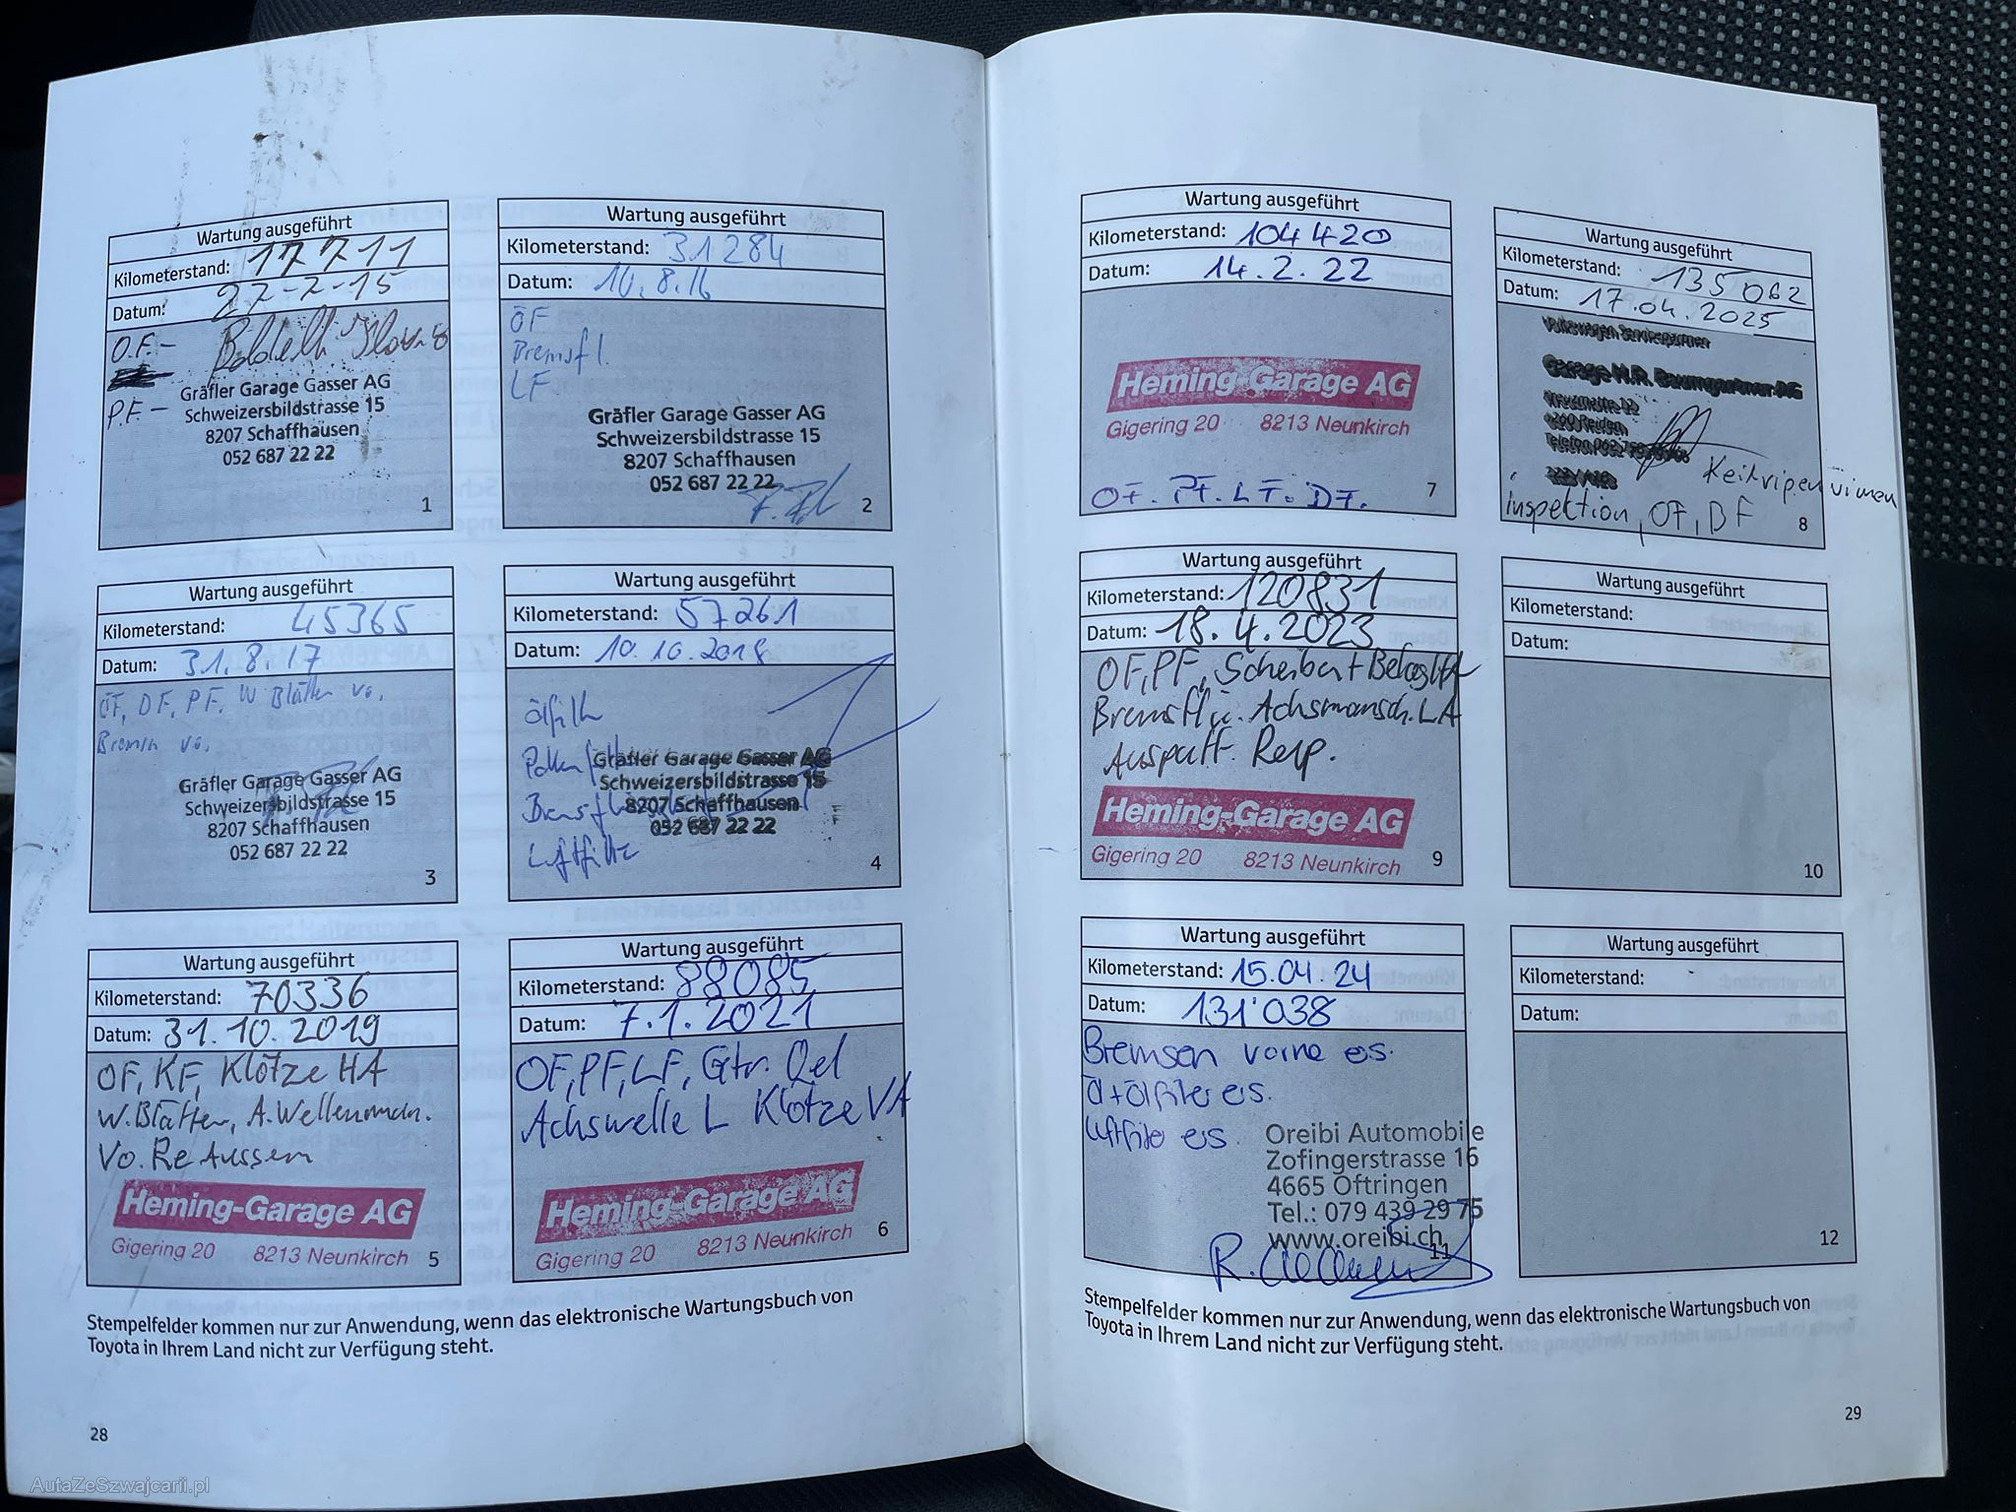 Wartung ausgeführt
Kilometerstand: 17711
Datum: 27-7-15
O.F.-
P.F.-
Gräfler Garage Gasser AG
Schweizersbildstrasse 15
8207 Schaffhausen
052 687 22 22
1
Wartung ausgeführt
Kilometerstand: 31284
Datum: 10.8.16
ÖF
Bremsfl.
LF
Gräfler Garage Gasser AG
Schweizersbildstrasse 15
8207 Schaffhausen
052 687 22 22
2
Wartung ausgeführt
Kilometerstand: 45365
Datum: 31.8.17
ÖF, DF, PF, W Blätter vo.
Bremsen vo.
Gräfler Garage Gasser AG
Schweizersbildstrasse 15
8207 Schaffhausen
052 687 22 22
3
Wartung ausgeführt
Kilometerstand: 57261
Datum: 10.10.2018
Ölfilter
Gräfler Garage Gasser AG
Schweizersbildstrasse 15
8207 Schaffhausen
052 687 22 22
Luftfilter
4
Wartung ausgeführt
Kilometerstand: 70336
Datum: 31.10.2019
OF, KF, Klötze HA
W.Blätter, A.Wellenmch.
Vo. Re Aussen
Heming-Garage AG
Gigering 20 8213 Neunkirch
5
Wartung ausgeführt
Kilometerstand: 88085
Datum: 7.1.2021
OF, PF, LF, Gtr. Oel
Achswelle L Klötze VA
Heming-Garage AG
Gigering 20 8213 Neunkirch
6
Stempelfelder kommen nur zur Anwendung, wenn das elektronische Wartungsbuch von
Toyota in Ihrem Land nicht zur Verfügung steht.
28
Wartung ausgeführt
Kilometerstand: 104420
Datum: 14.2.22
Heming-Garage AG
Gigering 20 8213 Neunkirch
OF. PF. LF. DF.
7
Wartung ausgeführt
Kilometerstand: 135062
Datum: 17.04.2025
Volkswagen Servicepartner
Garage H.R. Baumgartner AG
Keilripenriemen
inspektion, OF, BF
8
Wartung ausgeführt
Kilometerstand: 120831
Datum: 18.4.2023
OF, PF, Scheiben + Beläge HA
Bremsflü. Achsmansch. LA
Auspuff Rep.
Heming-Garage AG
Gigering 20 8213 Neunkirch
9
Wartung ausgeführt
Kilometerstand:
Datum:
10
Wartung ausgeführt
Kilometerstand: 15.04.24
Datum: 131'038
Bremsen vorne ers.
Öl+Ölfilter ers.
Luftfilter ers.
Oreibi Automobile
Zofingerstrasse 16
4665 Oftringen
Tel.: 079 439 29 75
www.oreibi.ch
11
Wartung ausgeführt
Kilometerstand:
Datum:
12
Stempelfelder kommen nur zur Anwendung, wenn das elektronische Wartungsbuch von
Toyota in Ihrem Land nicht zur Verfügung steht.
29
AutaZeSzwajcarii.pl